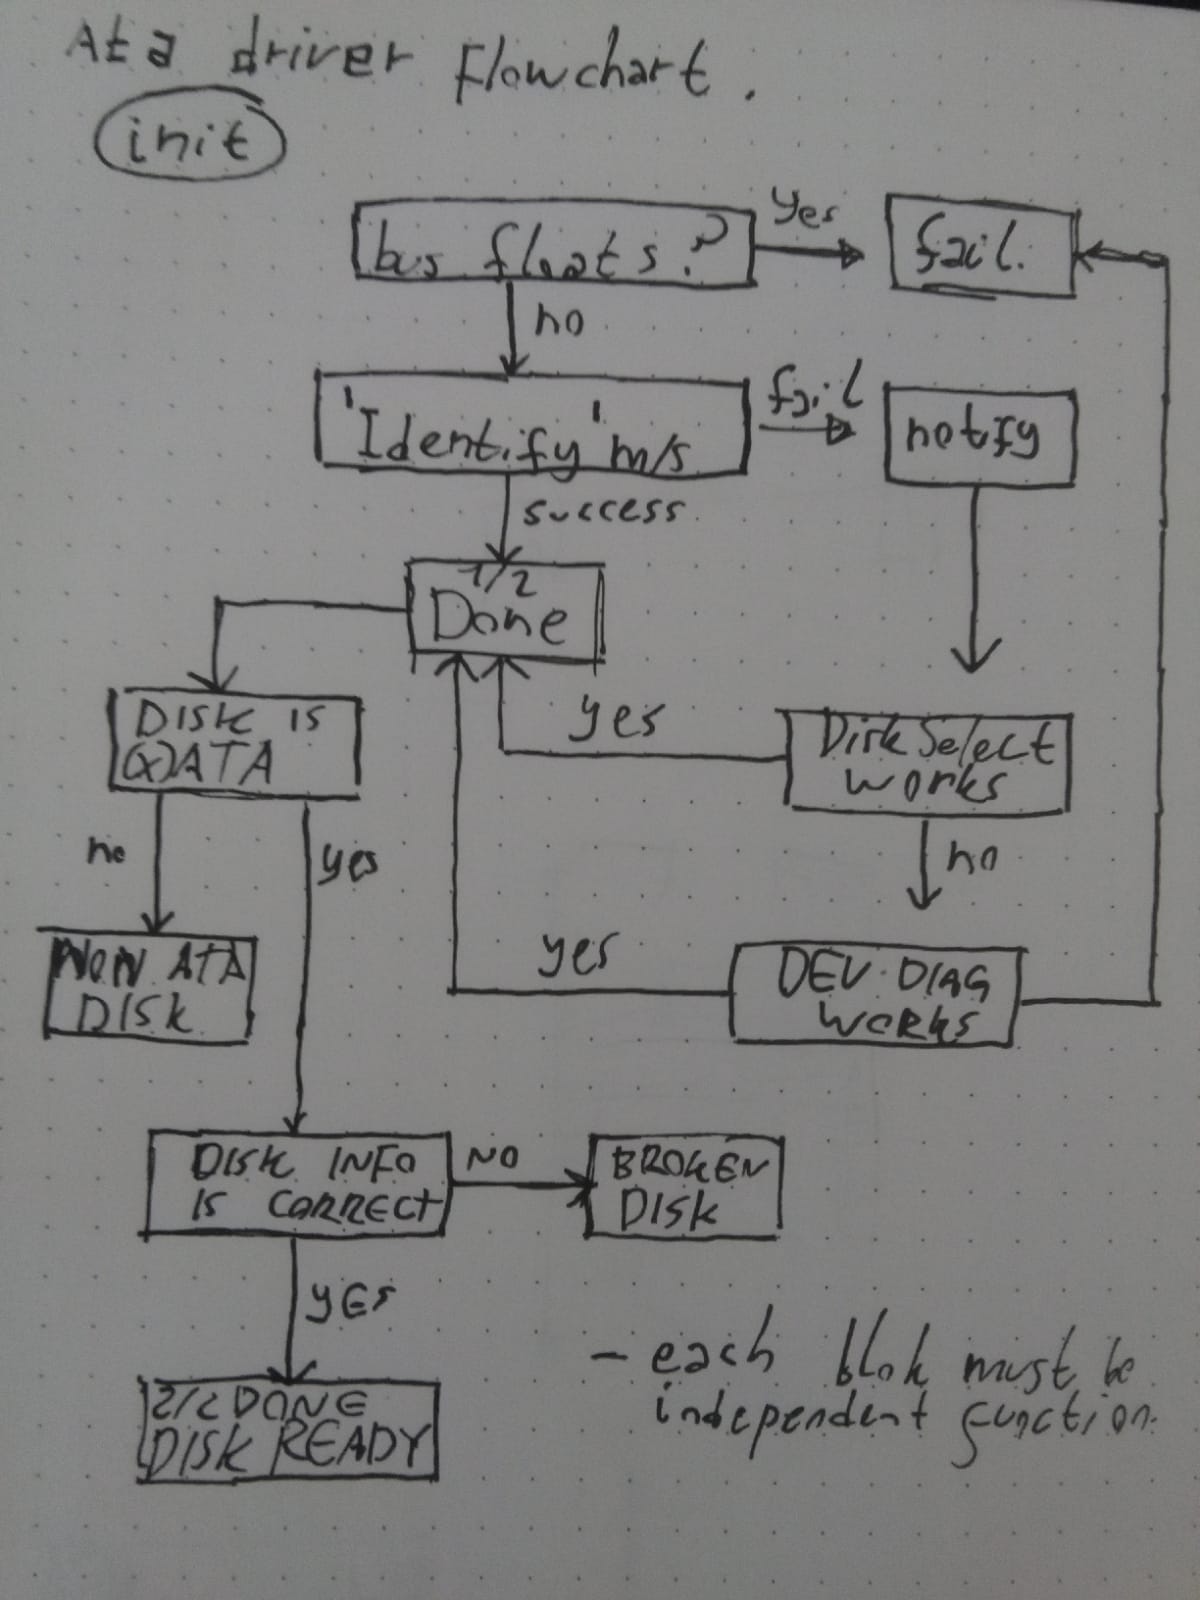 Ata driver Flowchart.
init
bus floats?
Yes
fail.
no
'Identify' m/s
fail
notify
success
1/2
Done
DISK IS
(X)ATA
yes
Disk Select
works
no
no
yes
NON ATA
DISK
yes
DEV. DIAG
WORKS
DISK INFO
IS CORRECT
NO
BROKEN
DISK
YES
2/2 DONE
DISK READY
- each blok must be
independent function.